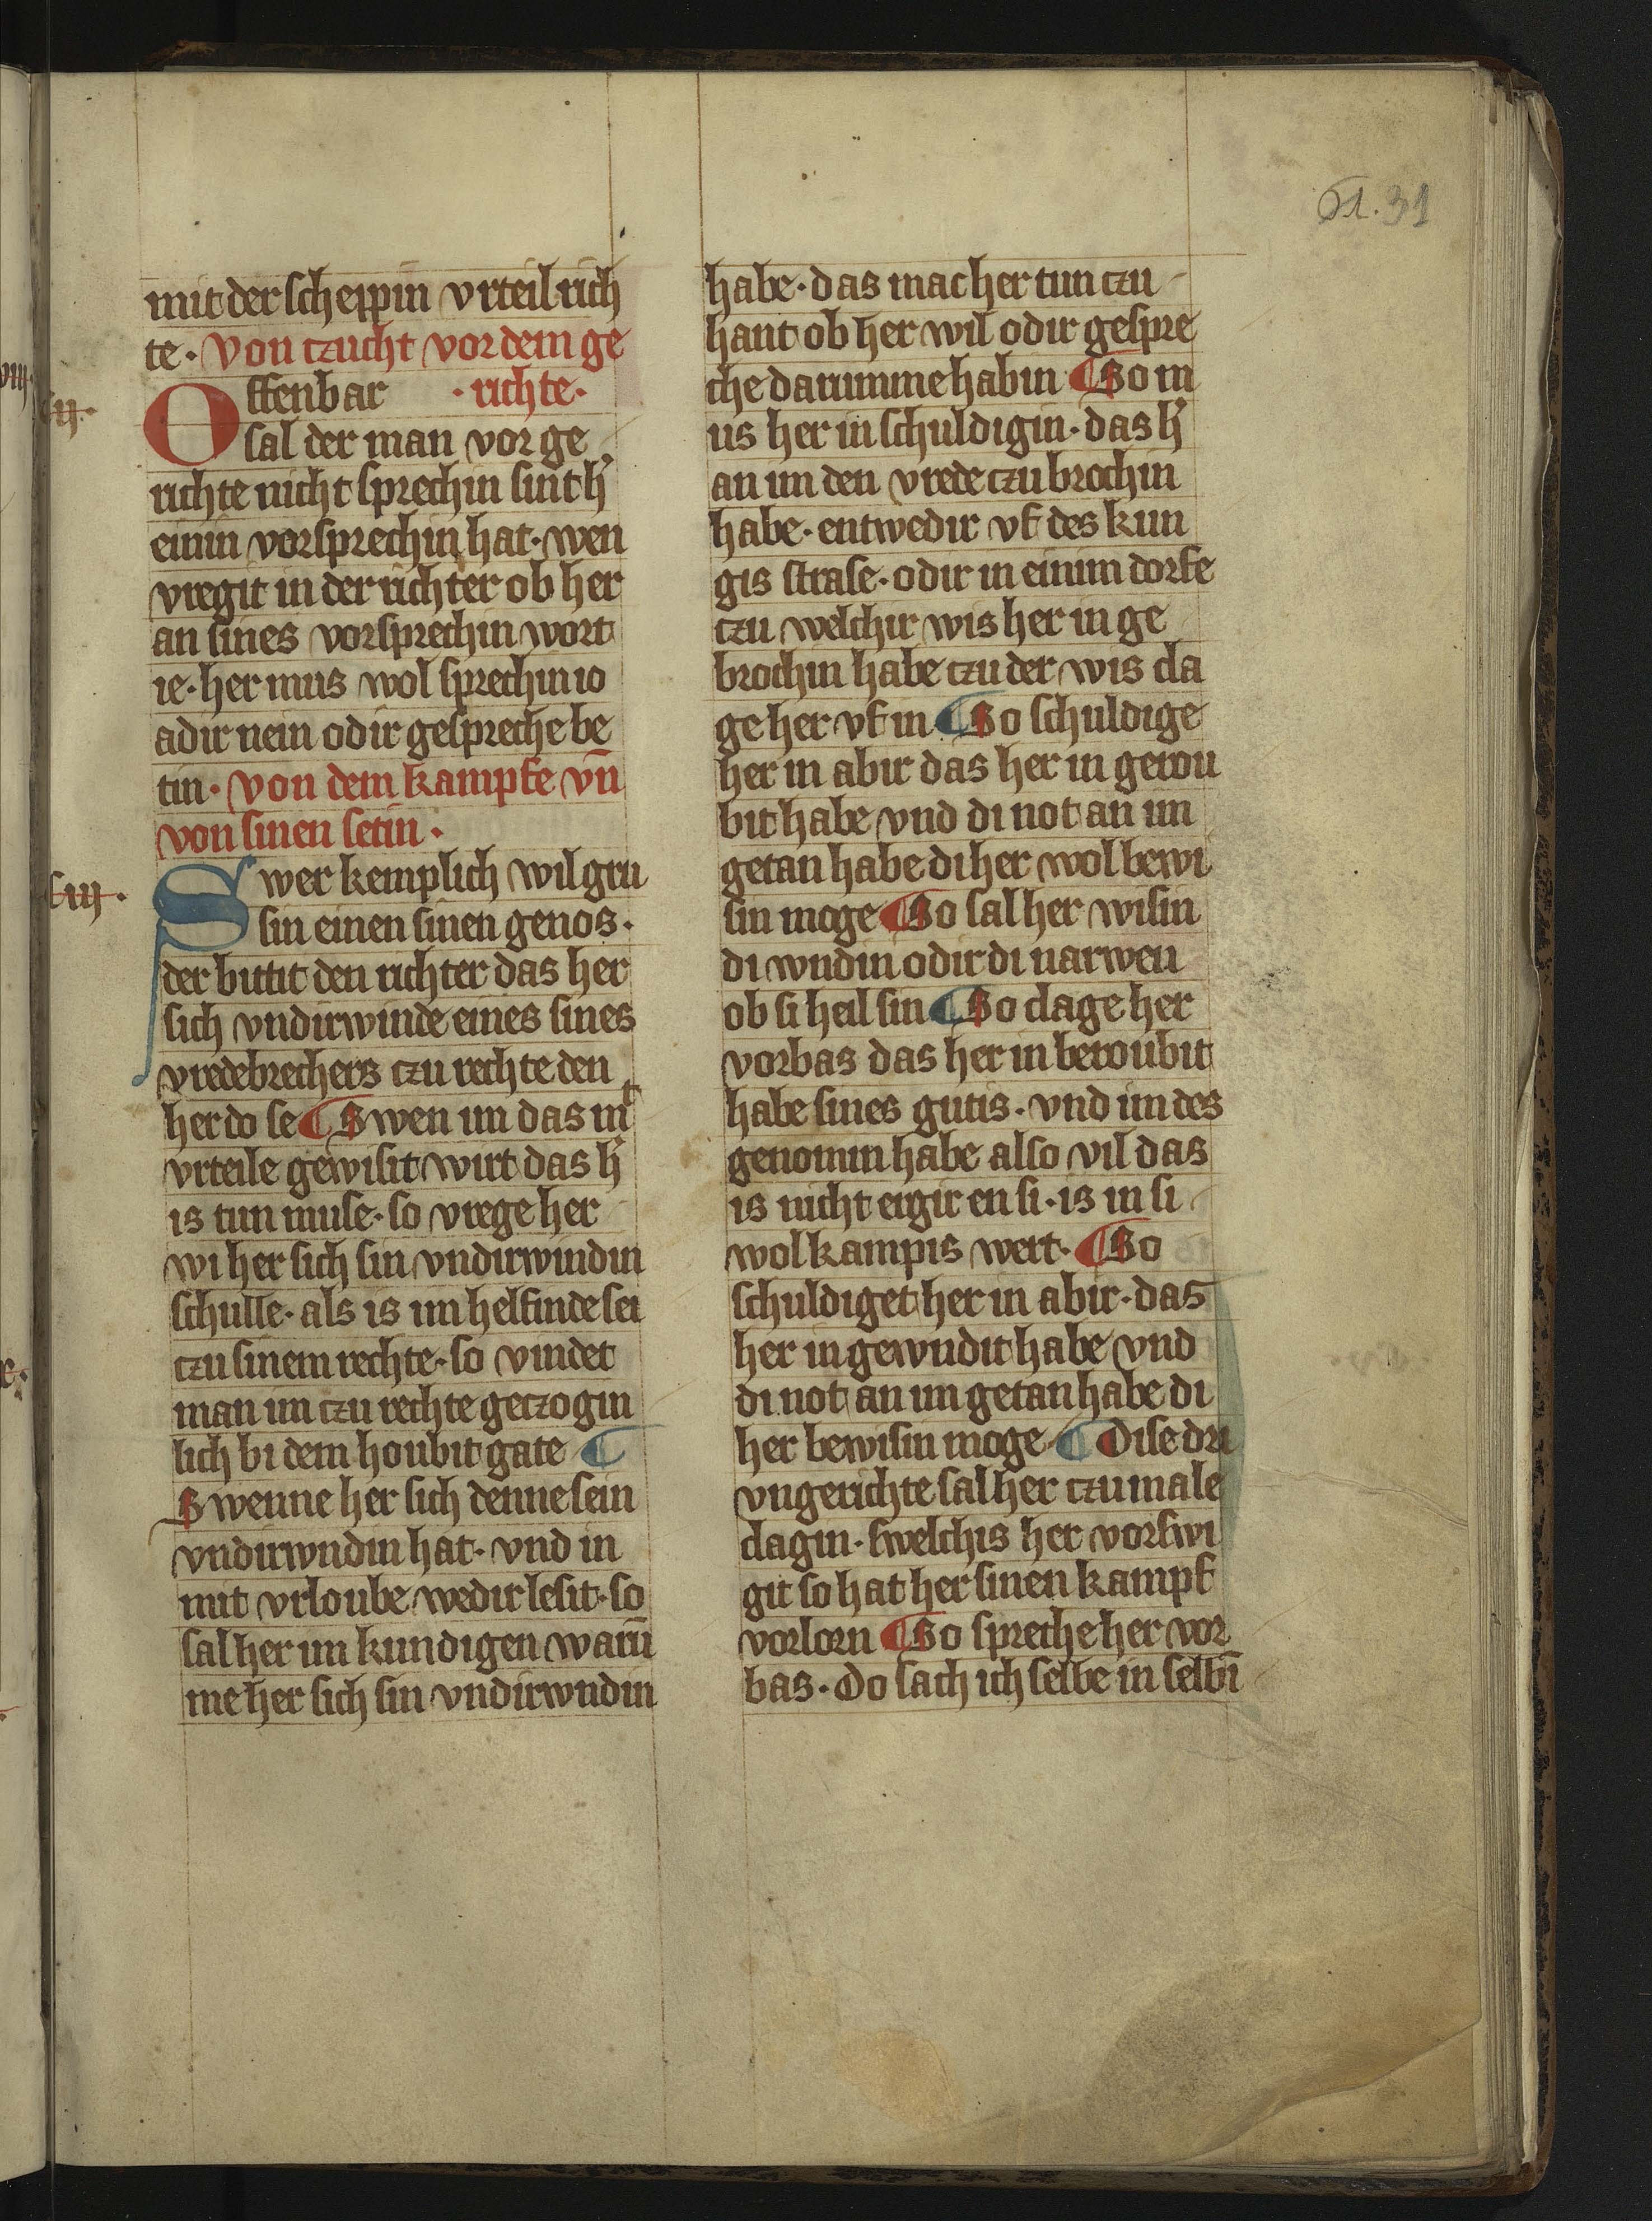 61. 31
mit der scheppin vrteil rich
te. Von czucht vor dem ge
Offenbar . richte.
sal der man vor ge
richte nicht sprechin sint h̕
einin vorsprechin hat. wen
vregit in der richter ob her
an sines vorsprechin wort
ie. her mus wol sprechin io
adir nein odir gespreche be
tin. Von dem kampfe vn̄
von sinen setin.
Swer kemplich wil gru
sin einen sinen genos.
der bittit den richter das her
sich vndirwinde eines sines
vredebrechers czu rechte den
her do se ¶ Swen im das mit
vrteile gewisit wirt das h̕
is tun muse. so vrege her
wi her sich sin vndirwindin
schulle. als is im helfinde sei
czu sinem rechte. so vindet
man im czu rechte geczogin
lich bi dem houbit gate ¶
Swenne her sich denne sein
vndirwndin hat. vnd in
mit vrloube wedir lesit. so
sal her im kundigen warū
me her sich sin vndirwndin
habe. das mac her tun czu
hant ob her wil odir gespre
che darumme habin ¶ So m
us her in schuldigin. das h̕
an im den vrede czu brochin
habe. entwedir vf des kun
gis strase. odir in einim dorfe
czu welchir wis her in ge
brochin habe czu der wis cla
ge her vf in ¶ So schuldige
her in abir das her in gerou
bit habe vnd di not an im
getan habe di her wol bewi
sin moge ¶ So sal her wisin
di wndin odir di narwen
ob si heil sin ¶ So clage her
vorbas das her in beroubit
habe sines gutis. vnd im des
genomin habe also vil das
is nicht ergir en si. is in si
wol kampis wert. ¶ So
schuldiget her in abir. das
her in gewndit habe vnd
di not an im getan habe di
her bewisin moge ¶ Dise dri
vngerichte sal her czu male
clagin. swelchis her vorswi
git so hat her sinen kampf
vorlorn ¶ So spreche her vor
bas. Do sach ich selbe in selbī